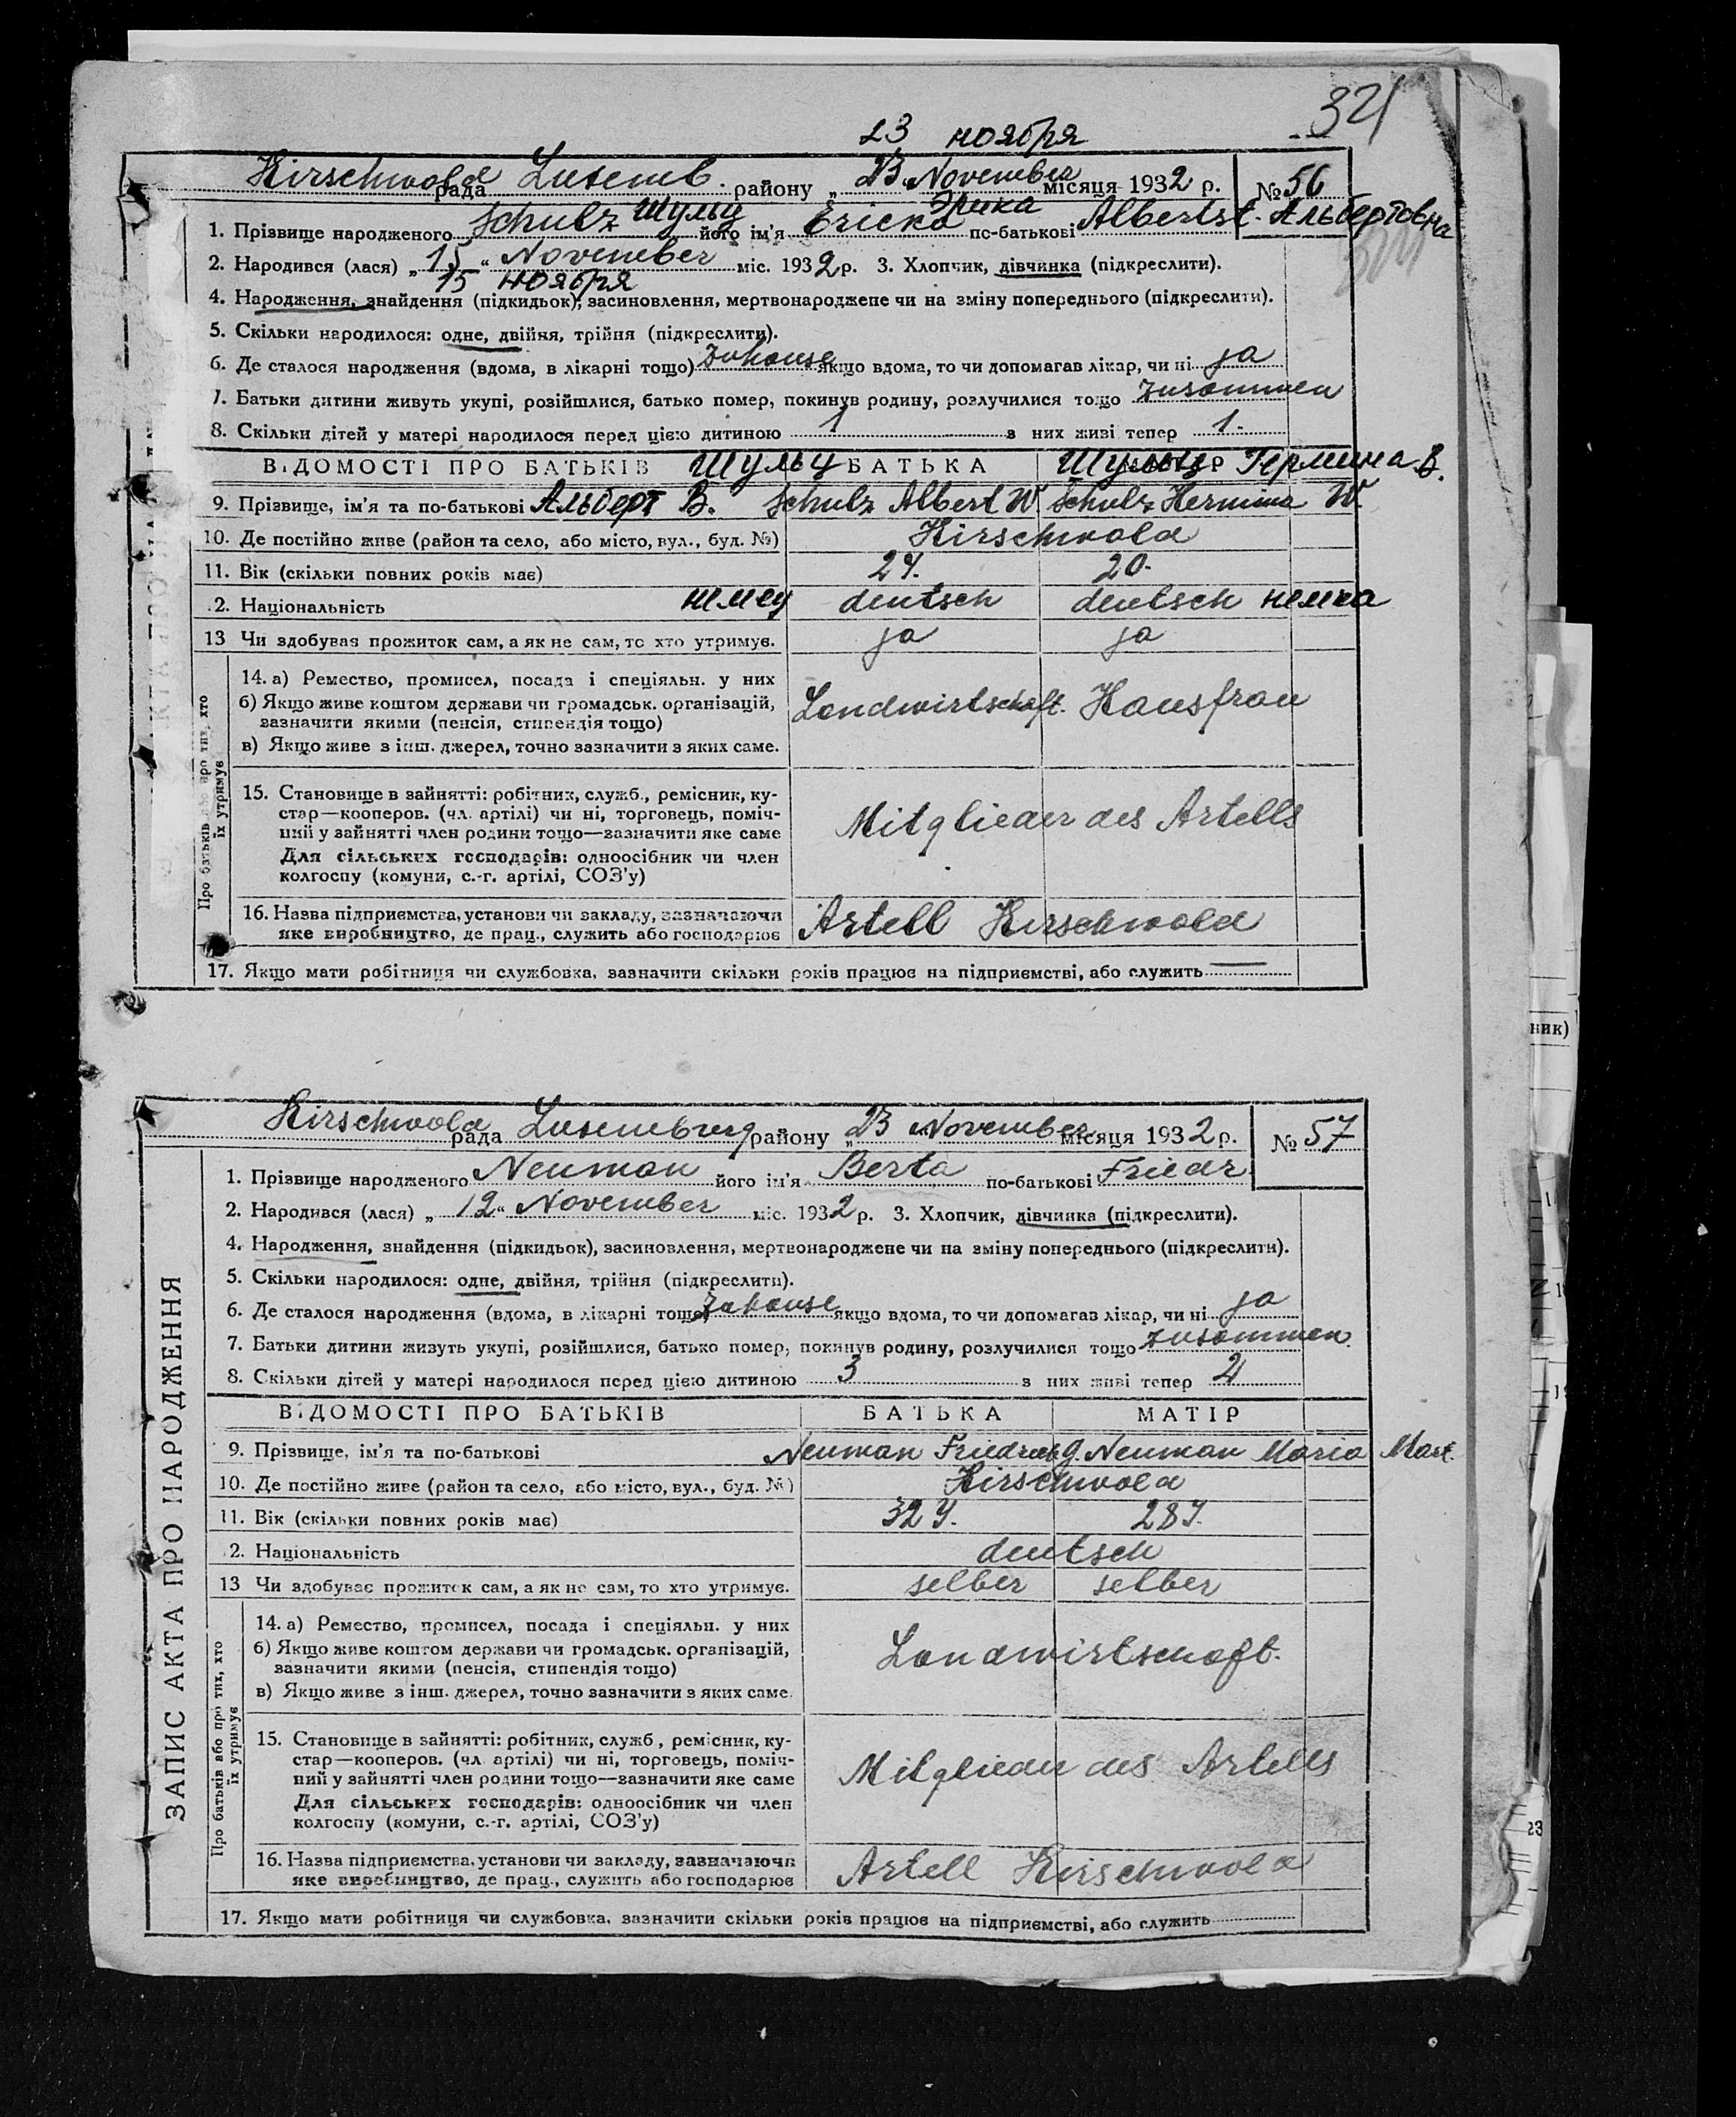 321
23 ноября
Kirschwald рада Luxemb. району „ 23. November місяця 1932 р. № 56
1. Прізвище народженого Schulz Шульц його ім'я Ericka Эрика по-батькові Albertst. Альбертовна
2. Народився (лася) „ 15 “ November міс. 1932 р. 3. Хлопчик, дівчинка (підкреслити).
15 ноября
4. Народження, знайдення (підкидьок), засиновлення, мертвонароджене чи на зміну попереднього (підкреслити).
5. Скільки народилося: одне, двійня, трійня (підкреслити).
6. Де сталося народження (вдома, в лікарні тощо) Zuhause якщо вдома, то чи допомагав лікар, чи ні ja
7. Батьки дитини живуть укупі, розійшлися, батько помер, покинув родину, розлучилися тощо zusammen
8. Скільки дітей у матері народилося перед цією дитиною 1 з них живі тепер 1.
ВІДОМОСТІ ПРО БАТЬКІВ Шульц БАТЬКА Шульц Гермина В.
9. Прізвище, ім'я та по-батькові Альберт В. Schulz Albert W Schulz Hermina W.
10. Де постійно живе (район та село, або місто, вул., буд. №) Kirschwald
11. Вік (скільки повних років має) 24. 20.
2. Національність немец deutsch deutsch немка
13 Чи здобував прожиток сам, а як не сам, то хто утримує. ja ja
Про батьків або про тих, хто їх утримує
14. а) Ремество, промисел, посада і спеціяльн. у них
б) Якщо живе коштом держави чи громадськ. організацій,
зазначити якими (пенсія, стипендія тощо)
в) Якщо живе з інш. джерел, точно зазначити з яких саме.
Landwirtschaft. Hausfrau
15. Становище в зайнятті: робітник, служб., ремісник, ку-
стар—кооперов. (чл. артілі) чи ні, торговець, поміч-
ний у зайнятті член родини тощо—зазначити яке саме
Для сільських господарів: одноосібник чи член
колгоспу (комуни, с.-г. артілі, СОЗ'у)
Mitglieder des Artells
16. Назва підприємства, установи чи закладу, зазначаючи
яке виробництво, де прац., служить або господарює
Artell Kirschwald
17. Якщо мати робітниця чи службовка, зазначити скільки років працює на підприємстві, або служить —
ЗАПИС АКТА ПРО НАРОДЖЕННЯ
Kirschwald рада Luxemburg району „ 23 November місяця 1932 р. № 57
1. Прізвище народженого Neuman його ім'я Berta по-батькові Friedr
2. Народився (лася) „ 12 “ November міс. 1932 р. 3. Хлопчик, дівчинка (підкреслити).
4. Народження, знайдення (підкидьок), засиновлення, мертвонароджене чи на зміну попереднього (підкреслити).
5. Скільки народилося: одне, двійня, трійня (підкреслити).
6. Де сталося народження (вдома, в лікарні тощо) Zuhause якщо вдома, то чи допомагав лікар, чи ні ja
7. Батьки дитини живуть укупі, розійшлися, батько помер, покинув родину, розлучилися тощо zusammen.
8. Скільки дітей у матері народилося перед цією дитиною 3 з них живі тепер 2
ВІДОМОСТІ ПРО БАТЬКІВ БАТЬКА МАТІР
9. Прізвище, ім'я та по-батькові Neuman Friedrich G. Neuman Maria Mart.
10. Де постійно живе (район та село, або місто, вул., буд. №) Kirschwald
11. Вік (скільки повних років має) 32 J. 28 J.
2. Національність deutsch
13 Чи здобуває прожиток сам, а як не сам, то хто утримує. selber selber
Про батьків або про тих, хто їх утримує
14. а) Ремество, промисел, посада і спеціяльн. у них
б) Якщо живе коштом держави чи громадськ. організацій,
зазначити якими (пенсія, стипендія тощо)
в) Якщо живе з інш. джерел, точно зазначити з яких саме.
Landwirtschaft.
15. Становище в зайнятті: робітник, служб., ремісник, ку-
стар—кооперов. (чл. артілі) чи ні, торговець, поміч-
ний у зайнятті член родини тощо—зазначити яке саме
Для сільських господарів: одноосібник чи член
колгоспу (комуни, с.-г. артілі, СОЗ'у)
Mitglieder des Artells
16. Назва підприємства, установи чи закладу, зазначаючи
яке виробництво, де прац., служить або господарює
Artell Kirschwald
17. Якщо мати робітниця чи службовка, зазначити скільки років працює на підприємстві, або служить